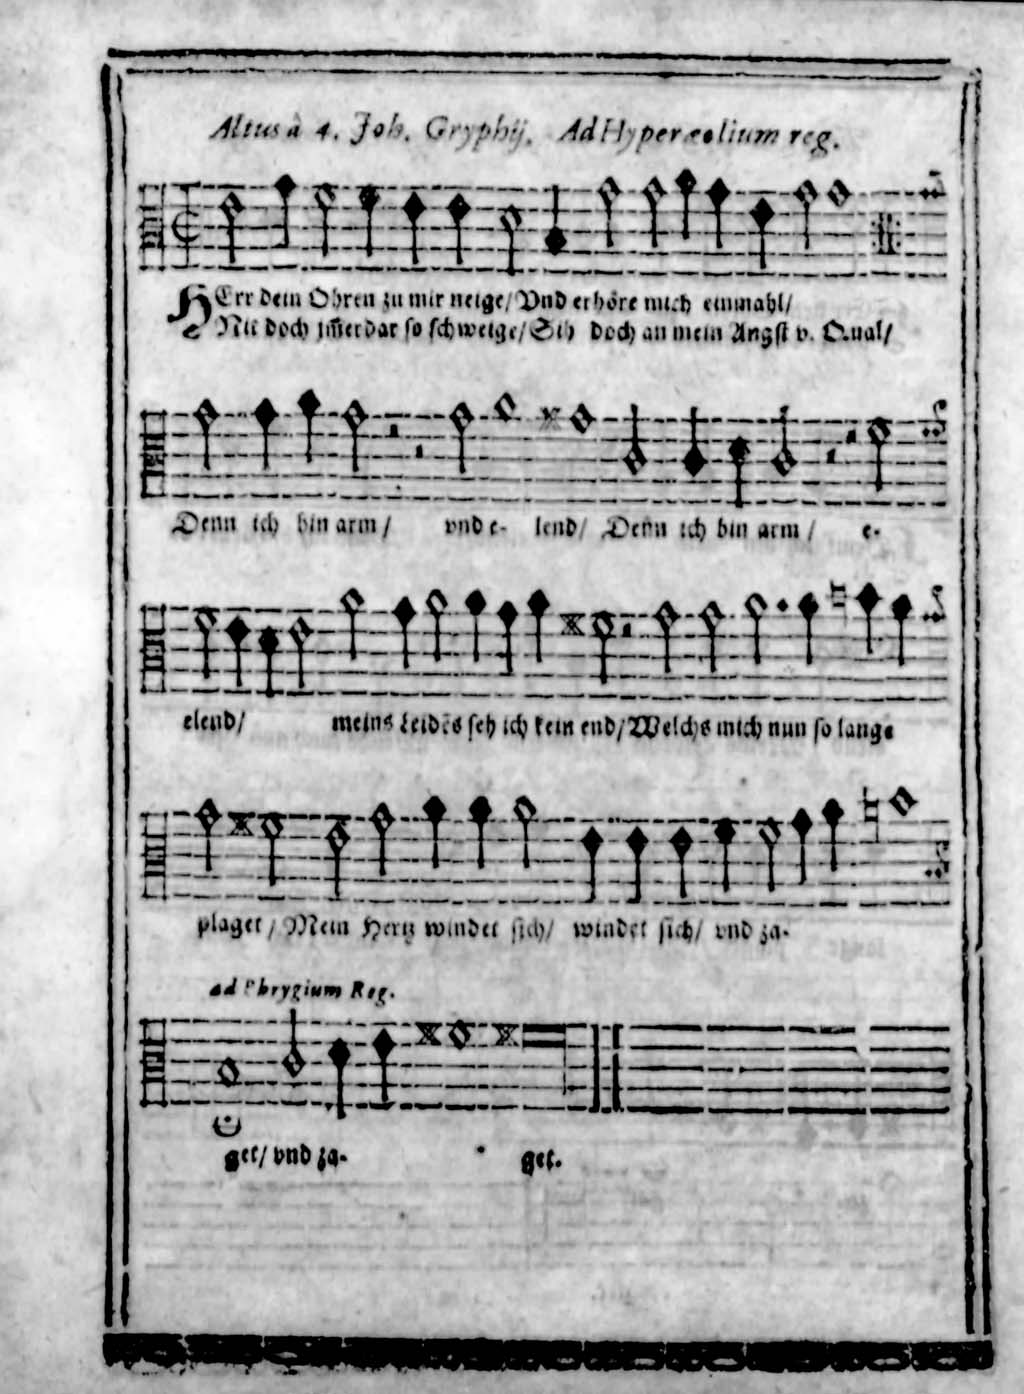 Altus à 4. Joh. Gryphij. Ad Hyperæolium reg.
HErr dein Ohren zu mir neige/ Vnd erhöre mich einmahl/
Nit doch im̃erdar so schweige/ Sih doch an mein Angst v. Qual/
Denn ich bin arm/ vnd e- lend/ Denn ich bin arm/ e-
elend/ meins Leides seh ich kein end/ Welchs mich nun so lange
plaget/ Mein Hertz windet sich/ windet sich/ vnd za-
ad Phrygium Reg.
get/ vnd za- get.